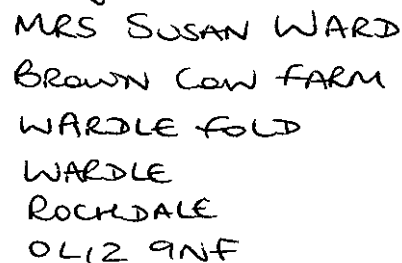 MRS SUSAN WARD
BROWN COW FARM
WARDLE FOLD
WARDLE
ROCHDALE
OL12 9NF